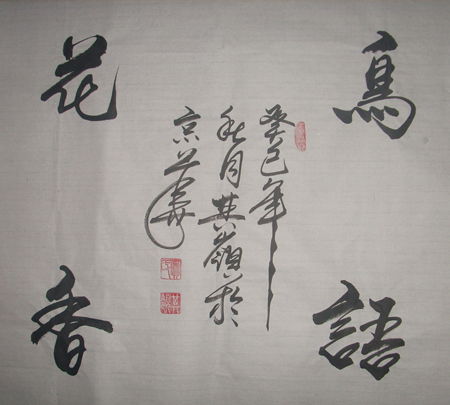 鳥語
花香
癸巳年
秋月其嶺於
京華